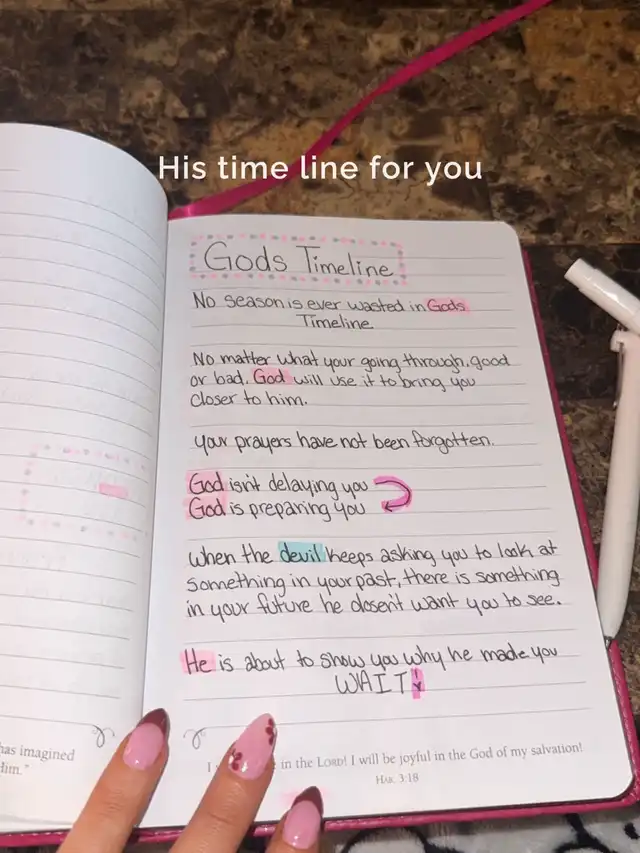 His time line for you
Gods Timeline
No season is ever wasted in Gods
Timeline
No matter what your going through, good
or bad, God will use it to bring you
closer to him.
your prayers have not been forgotten.
God isn't delaying you
God is preparing you
when the devil keeps asking you to look at
something in your past, there is something
in your future he dosen't want you to see.
He is about to show you why he made you
WAIT!
has imagined
Him."
I in the LORD! I will be joyful in the God of my salvation!
HAB. 3:18